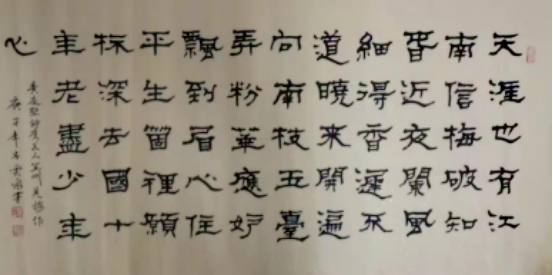 天涯也有江
南信梅破知
春近夜闌風
細得香遲不
道曉來開遍
向南枝玉臺
弄粉華應妒
飄到眉心住
平生箇裡願
杯深去國十
年老盡少年
心
黃庭堅詞虞美人宜州見梅作
庚子年冬書